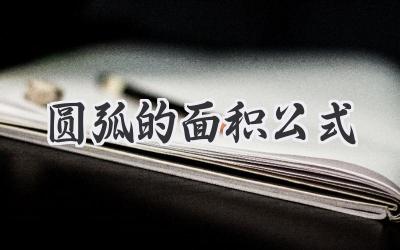 圆弧的面积公式